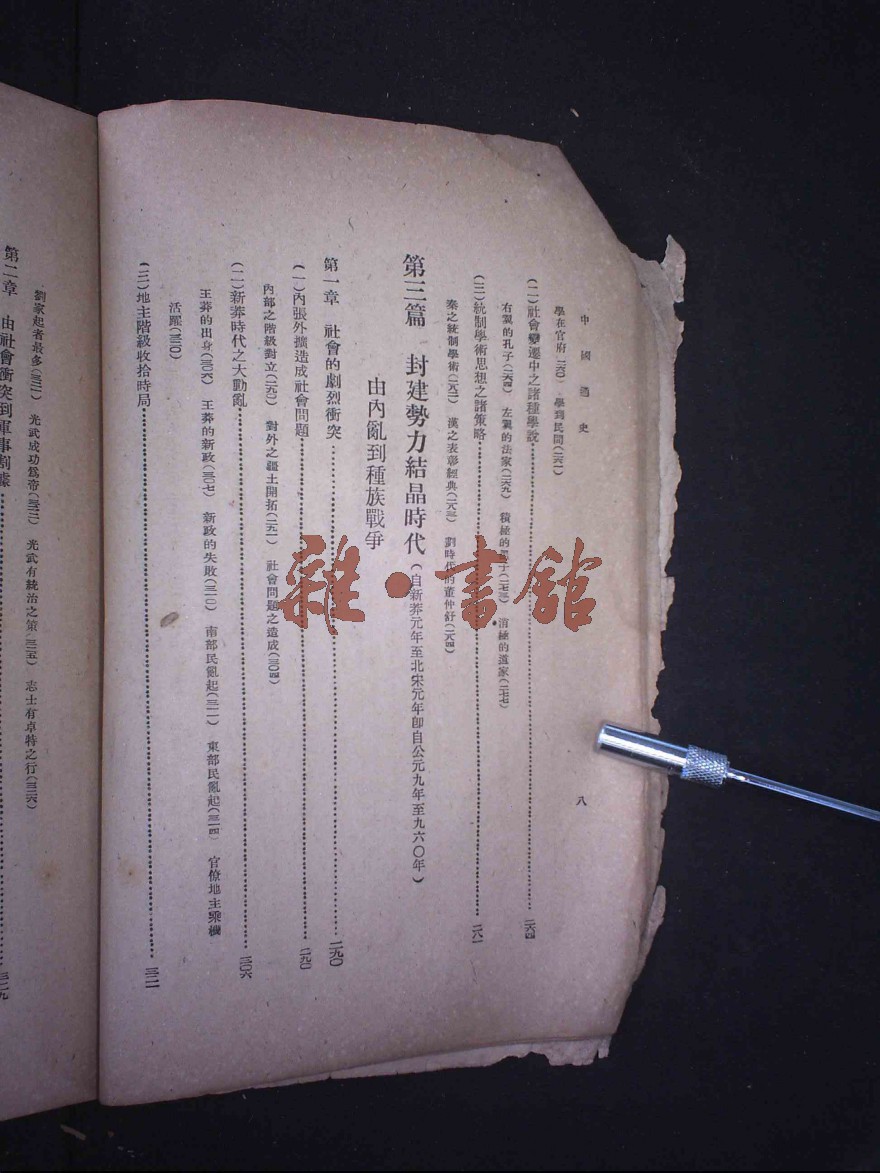 中國通史
八
學在官府(二六〇) 學到民間(二六一)
(二)社會變遷中之諸種學說……二六四
右翼的孔子(二六四) 左翼的法家(二六九) 積極的墨子(二七三) 消極的道家(二七七)
(三)統制學術思想之諸策略……二八一
秦之統制學術(二八二) 漢之表彰經典(二八三) 劃時代的董仲舒(二八四)
第三篇 封建勢力結晶時代(自新莽元年至北宋元年卽自公元九年至九六〇年)
由內亂到種族戰爭
第一章 社會的劇烈衝突……二九〇
(一)內張外擴造成社會問題……二九〇
內部之階級對立(二九〇) 對外之疆土開拓(二九一) 社會問題之造成(三〇四)
(二)新莽時代之大動亂……三〇六
王莽的出身(三〇六) 王莽的新政(三〇七) 新政的失敗(三一〇) 南部民亂起(三一一) 東部民亂起(三一四) 官僚地主乘機
活躍(三二〇)
(三)地主階級收拾時局……三二一
劉家起者最多 光武成功爲帝 光武有統治之策(三二五) 志士有卓特之行(三二六)
第二章 由社會衝突到軍事割據……三二九
雜·書館